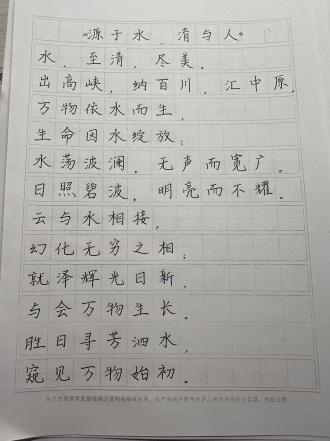 “源于水，清与人”
水，至清，尽美。
出高峡，纳百川，汇中原。
万物依水而生，
生命因水绽放；
水荡波澜，无声而宽广。
日照碧波，明亮而不耀。
云与水相接，
幻化无穷之相；
就泽辉光日新。
与会万物生长。
胜日寻芳泗水，
窥见万物始初。